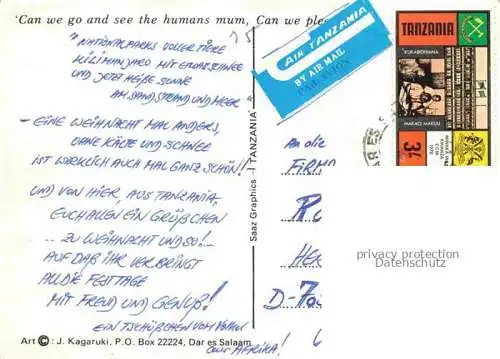 'Can we go and see the humans mum, Can we ple
"NATIONALPARKS VOLLER TIERE
KILIMANJARO MIT EWIGEM SCHNEE
UND JETZT HEIßE SONNE
AM SANDSTRAND UND MEER"
– EINE WEIHNACHT MAL ANDERS,
OHNE KÄLTE UND SCHNEE
IST WIRKLICH AUCH MAL GANZ SCHÖN!
UND VON HIER, AUS TANZANIA,
EUCH ALLEN EIN GRÜßCHEN
... ZU WEIHNACHT UND SO!–
AUF DAß IHR VERBRINGT
ALL DIE FESTTAGE
MIT FREUD UND GENUß!
EIN TSCHÜßCHEN VOM
AUS AFRIKA!
Art © : J. Kagaruki, P.O. Box 22224, Dar es Salaam
Saaz Graphics - TANZANIA
AIR TANZANIA
BY AIR MAIL
PAR AVION
TANZANIA
KUKABDHIANA
MARACI MAKUU
3/-
DAR ES
An die
FIRMA
R
HE
D-70
privacy protection
Datenschutz